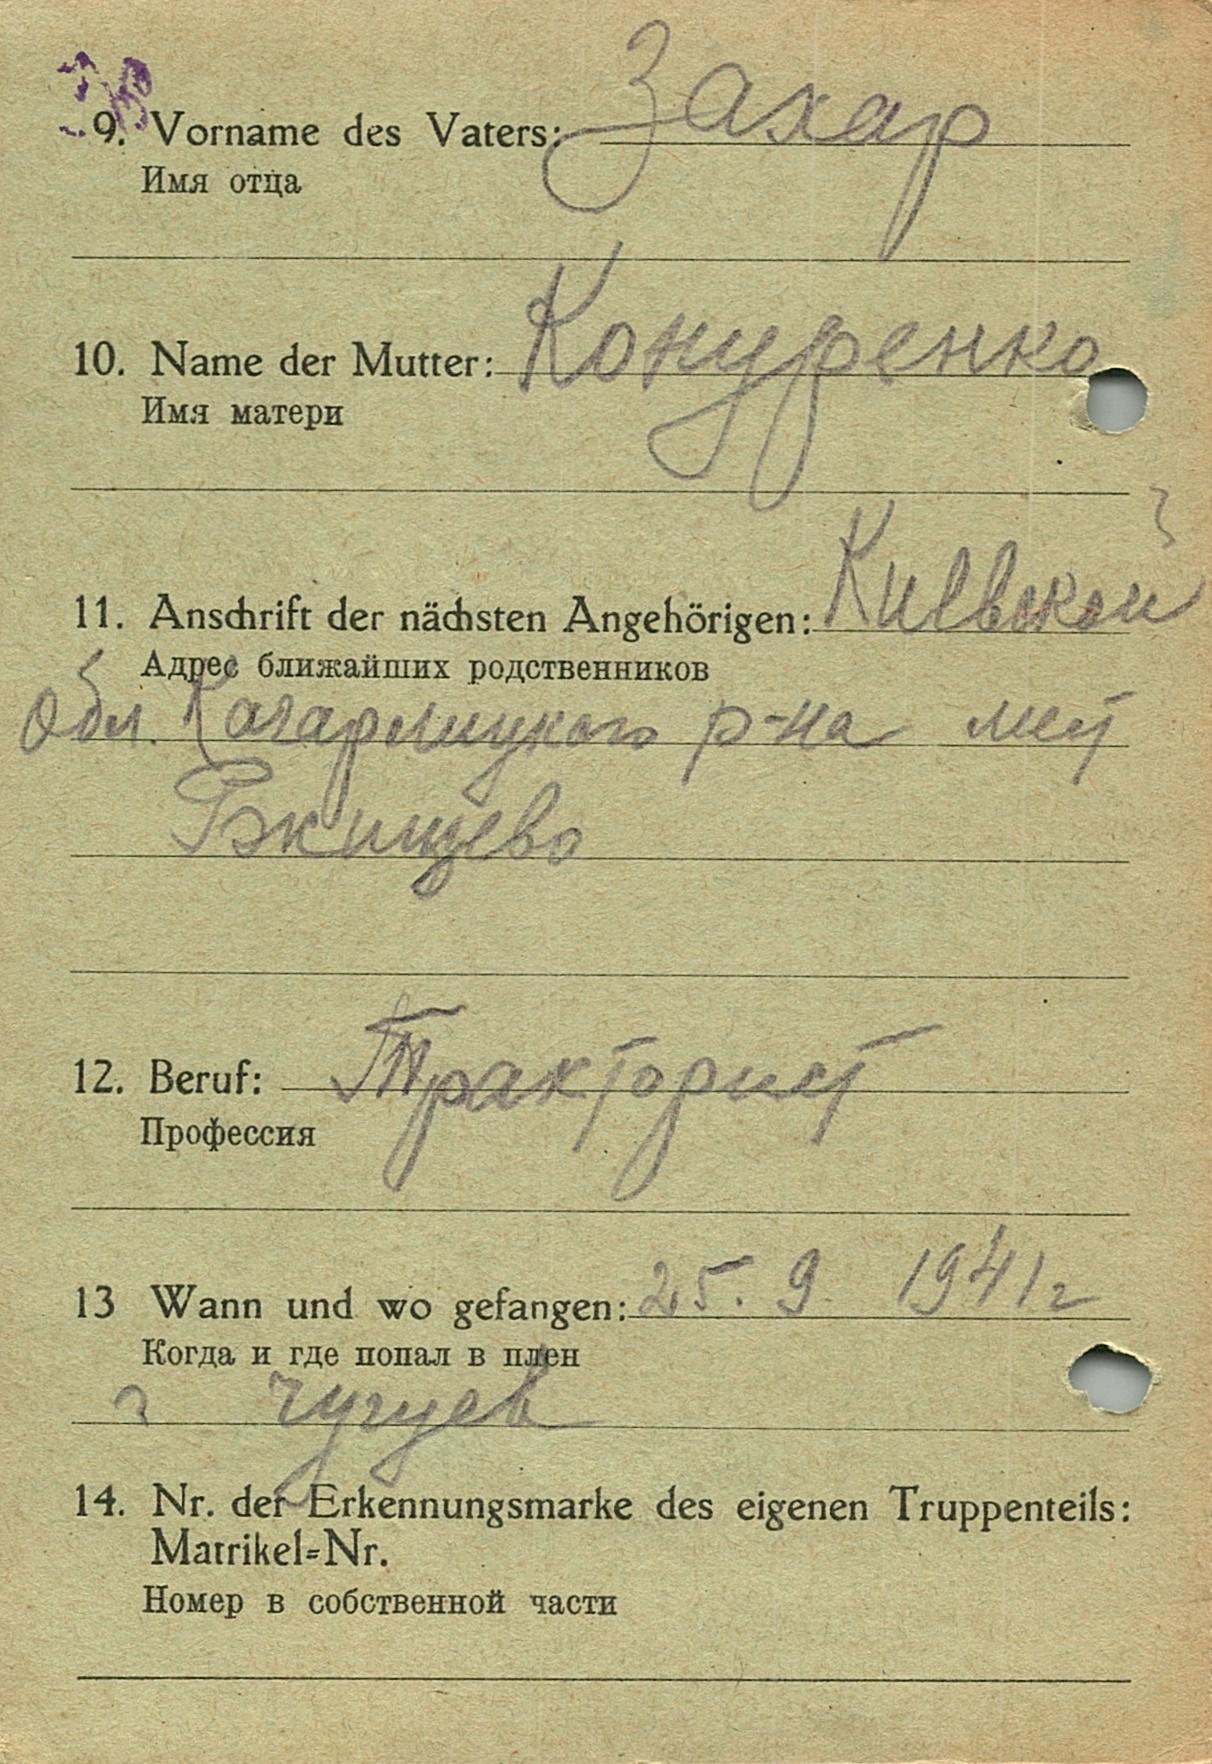 9. Vorname des Vaters: Захар
Имя отца
10. Name der Mutter: Конуренко
Имя матери
11. Anschrift der nächsten Angehörigen: Киевской
Адрес ближайших родственников
обл. Кагарлицкого р-на мст
Ржищево
12. Beruf: Тракторист
Профессия
13 Wann und wo gefangen: 25. 9 1941г
Когда и где попал в плен
г чугуев
14. Nr. der Erkennungsmarke des eigenen Truppenteils:
Matrikel=Nr.
Номер в собственной части